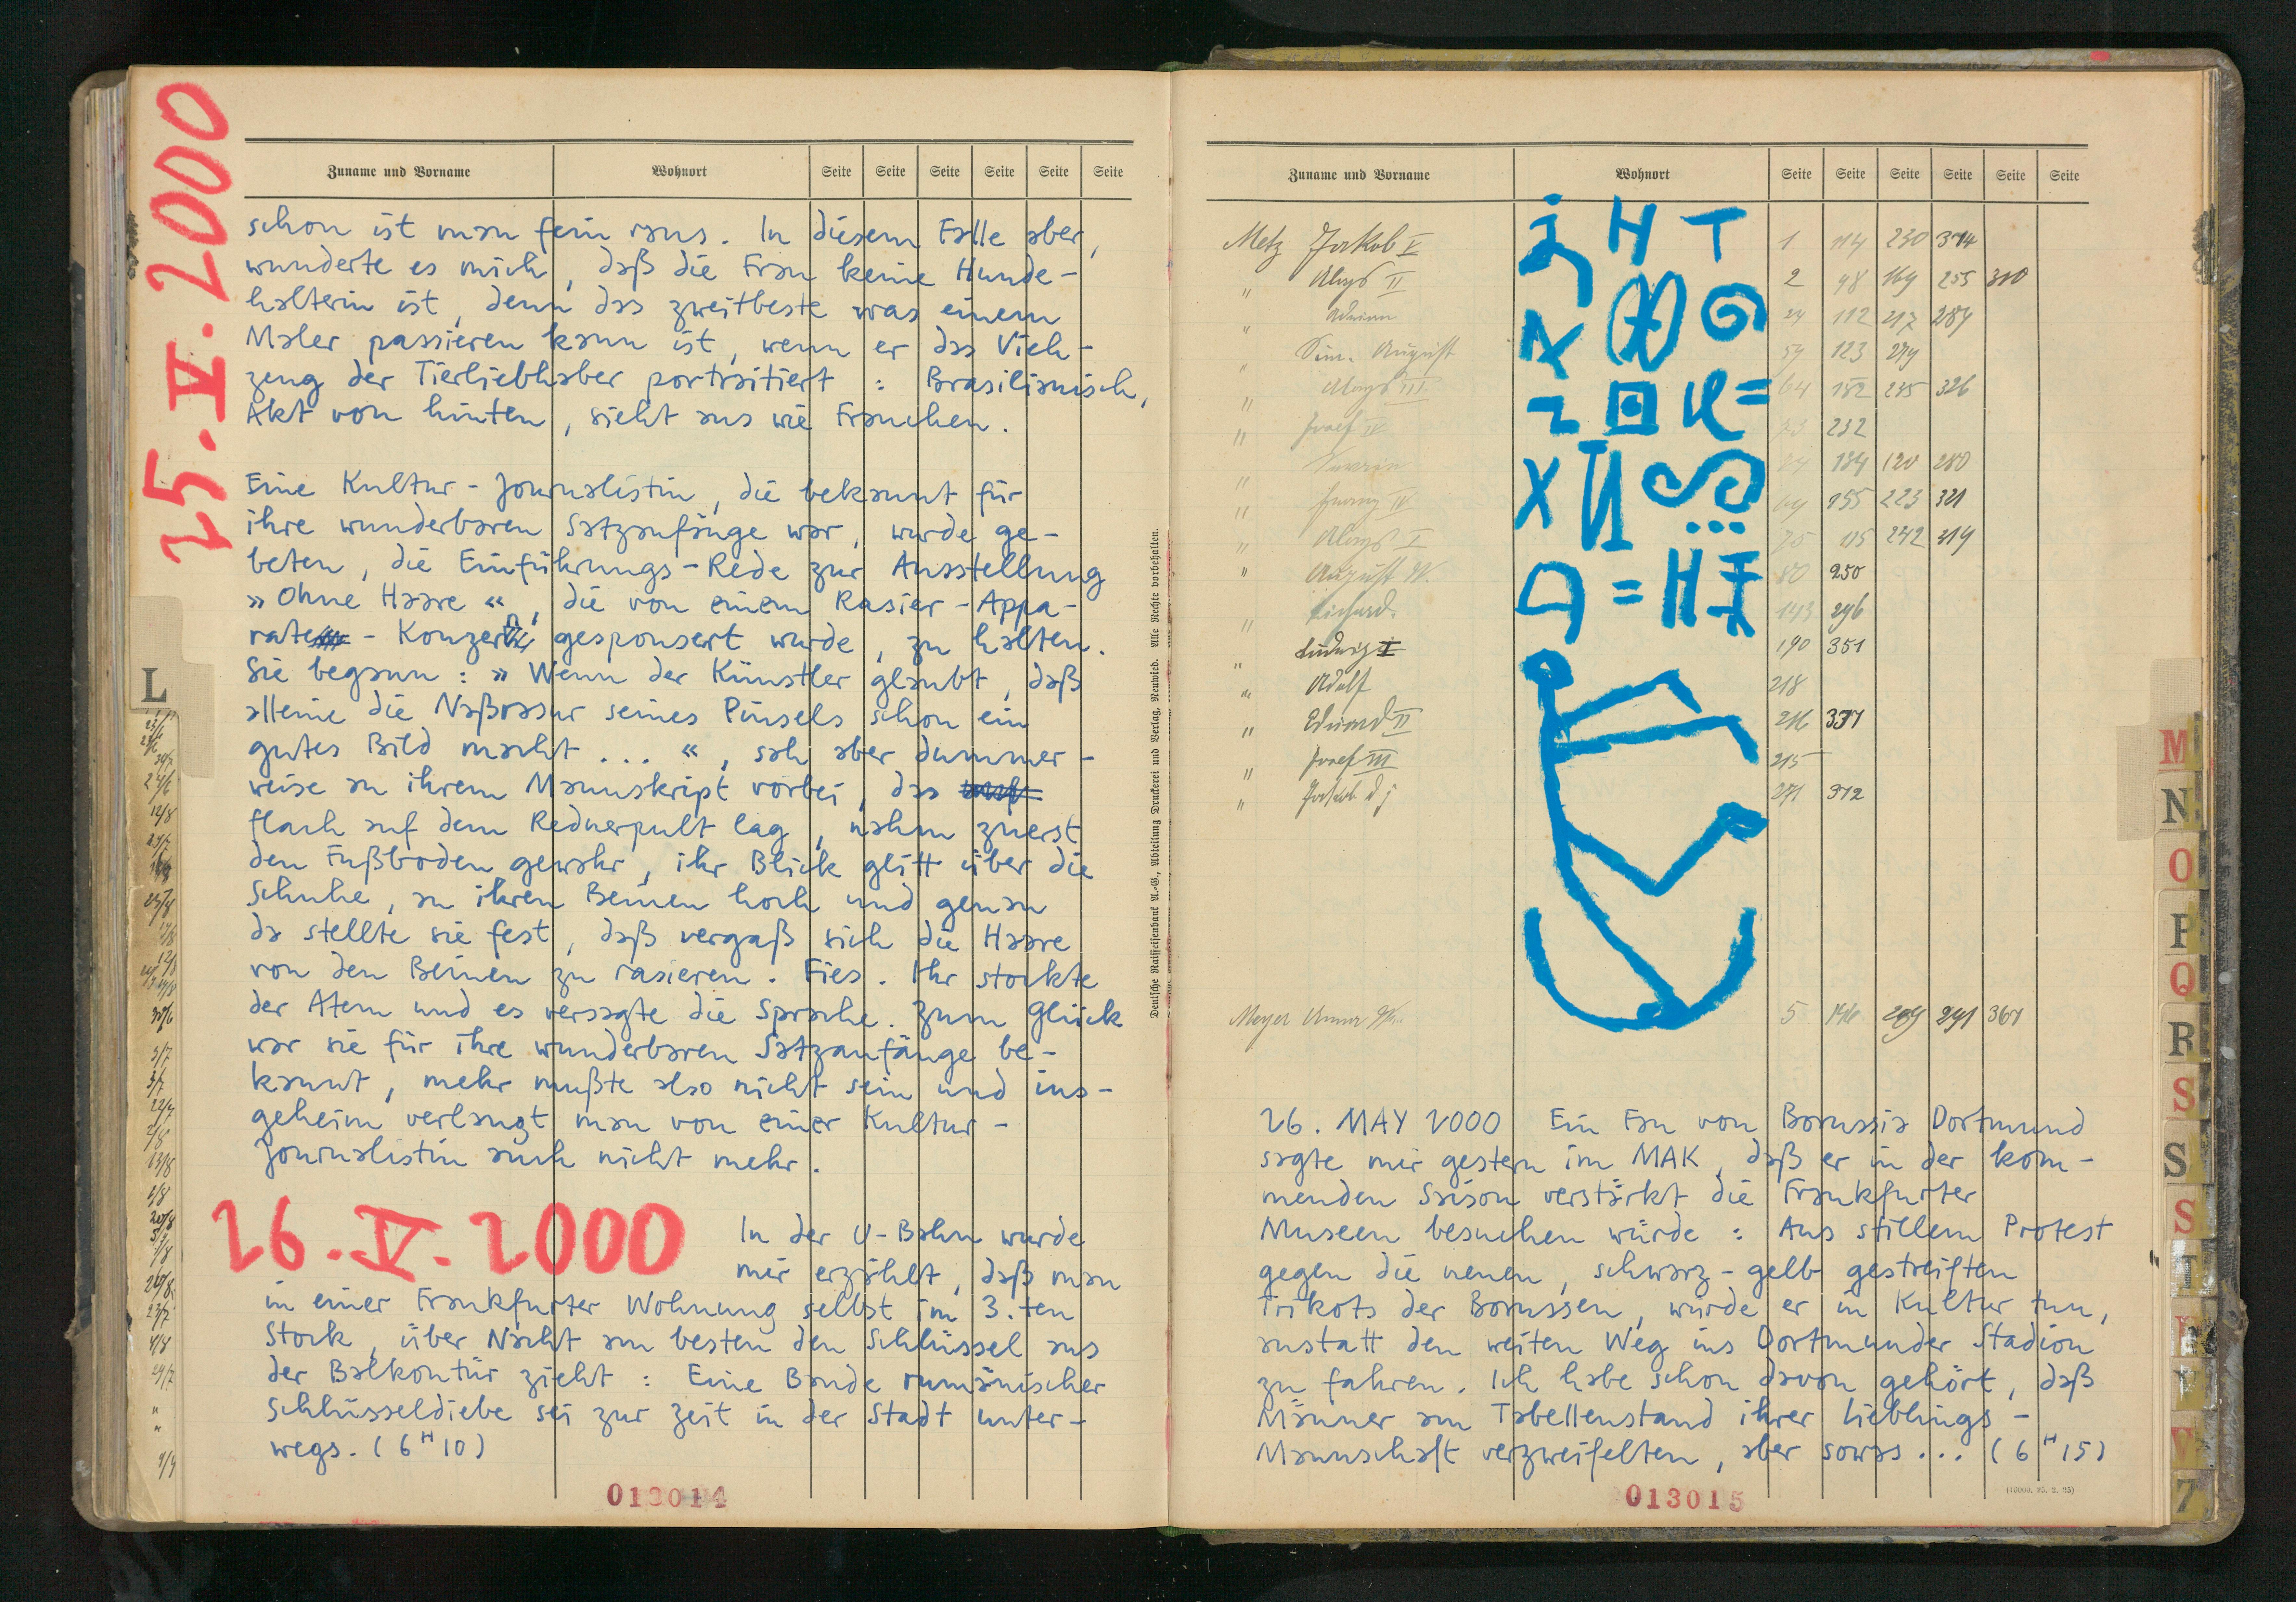 25.V.2000
Zuname und Vorname Wohnort Seite Seite Seite Seite Seite Seite
schon ist man fein raus. In diesem Falle aber,
wunderte es mich, daß die Frau keine Hunde-
halterin ist, denn das zweitbeste was einem
Maler passieren kann ist, wenn er das Vieh-
zeug der Tierliebhaber porträtiert : Brasilianisch,
Akt von hinten, sieht aus wie Frauchen.
Eine Kultur-Journalistin, die bekannt für
ihre wunderbaren Satzanfänge war, wurde ge-
beten, die Einführungs-Rede zur Ausstellung
» Ohne Haare «, die von einem Rasier-Appa-
rate - Konzern gesponsert wurde, zu halten.
Sie begann : » Wenn der Künstler glaubt, daß
alleine die Naßrasur seines Pinsels schon ein
gutes Bild macht ... «, sah aber dummer-
weise an ihrem Manuskript vorbei, das
flach auf dem Rednerpult lag, nahm zuerst
den Fußboden gewahr, ihr Blick glitt über die
Schuhe, an ihren Beinen hoch und genau
da stellte sie fest, daß vergaß sich die Haare
von den Beinen zu rasieren. Fies. Ihr stockte
der Atem und es versagte die Sprache. Zum Glück
war sie für ihre wunderbaren Satzanfänge be-
kannt, mehr mußte also nicht sein und ins-
geheim verlangt man von einer Kultur-
Journalistin auch nicht mehr.
26.V.2000
In der U-Bahn wurde
mir erzählt, daß man
in einer Frankfurter Wohnung selbst im 3.ten
Stock, über Nacht am besten den Schlüssel aus
der Balkontür zieht : Eine Bande rumänischer
Schlüsseldiebe sei zur Zeit in der Stadt unter-
wegs. (6 H 10)
013014
L
Deutsche Raiffeisenbank A.-G., Abteilung Druckerei und Verlag, Neuwied. Alle Rechte vorbehalten.
Zuname und Vorname Wohnort Seite Seite Seite Seite Seite Seite
Metz Jakob V 1 114 230 374
" Aloys II 2 98 169 255 310
" Adrian 24 112 217 284
" Sim. August 59 123 279
" Aloys III 64 152 245 326
" Josef IV 73 232
" 184 120 280
" IV 69 155 223 321
" Aloys I 75 115 242 319
" August W. 80 250
" Richard. 143 296
" Ludwig I 190 351
" Adolf 218
" Eduard II 216 337
" Josef III 215
" Jakob d j 271 312
Meyer 5 146 209 291 367
26. MAY 2000 Ein Fan von Borussia Dortmund
sagte mir gestern im MAK, daß er in der kom-
menden Saison verstärkt die Frankfurter
Museen besuchen würde : Aus stillem Protest
gegen die neuen, schwarz-gelb gestreiften
Trikots der Borussen, würde er in Kultur tun,
anstatt den weiten Weg ins Dortmunder Stadion
zu fahren. Ich habe schon davon gehört, daß
Männer am Tabellenstand ihrer Lieblings-
Mannschaft verzweifelten, aber sowas... (6 H 15)
013015
M
N
O
P
Q
R
S
S
S
T
V
7